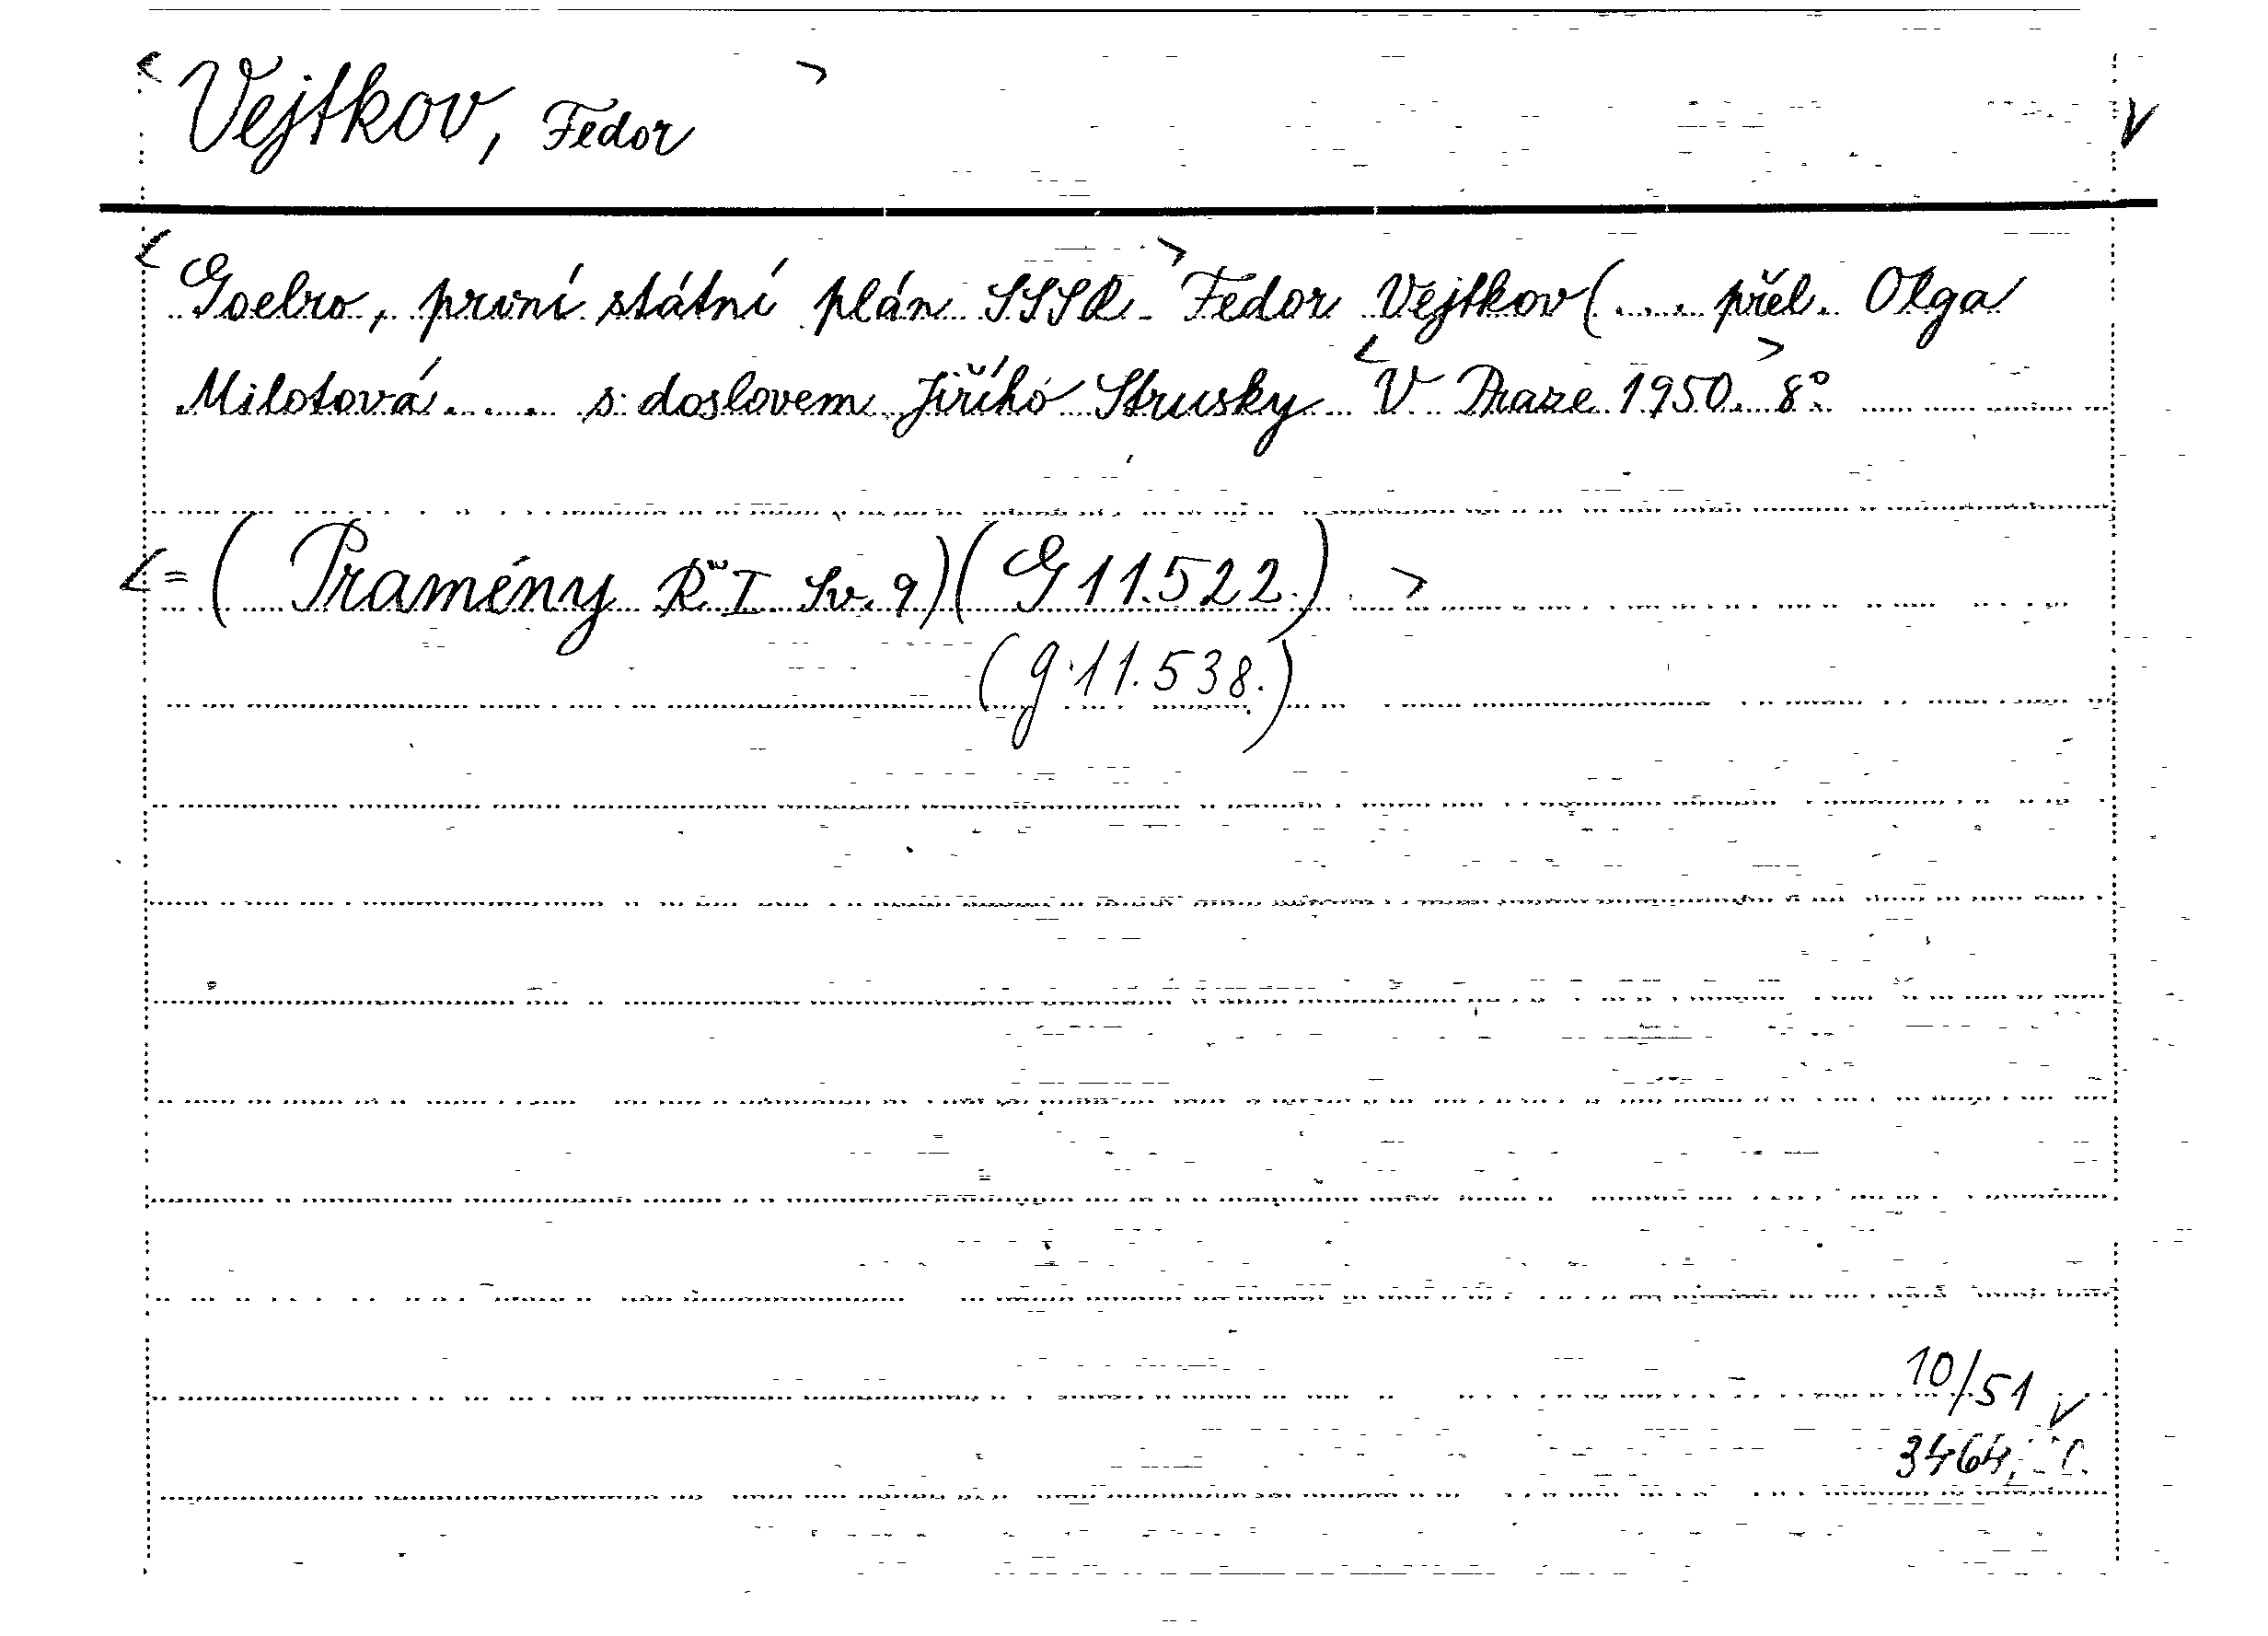 < Vejtkov, Fedor >
V
< Goelro, první státní plán SSSR > Fedor Vejtkov (.... přel. Olga
Milotová..... s doslovem Jiřího Strusky < V Praze 1950. > 8°
< = ( Pramény Ř I Sv. 9) (G 11.522.) >
(g 11.538.)
10/51 V
3464,